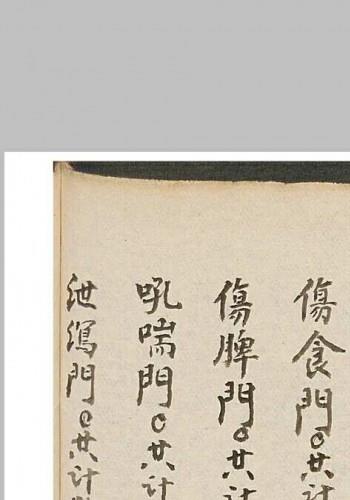 傷食門〇共计
傷脾門〇共计
吼喘門〇共计
泄瀉門〇共计